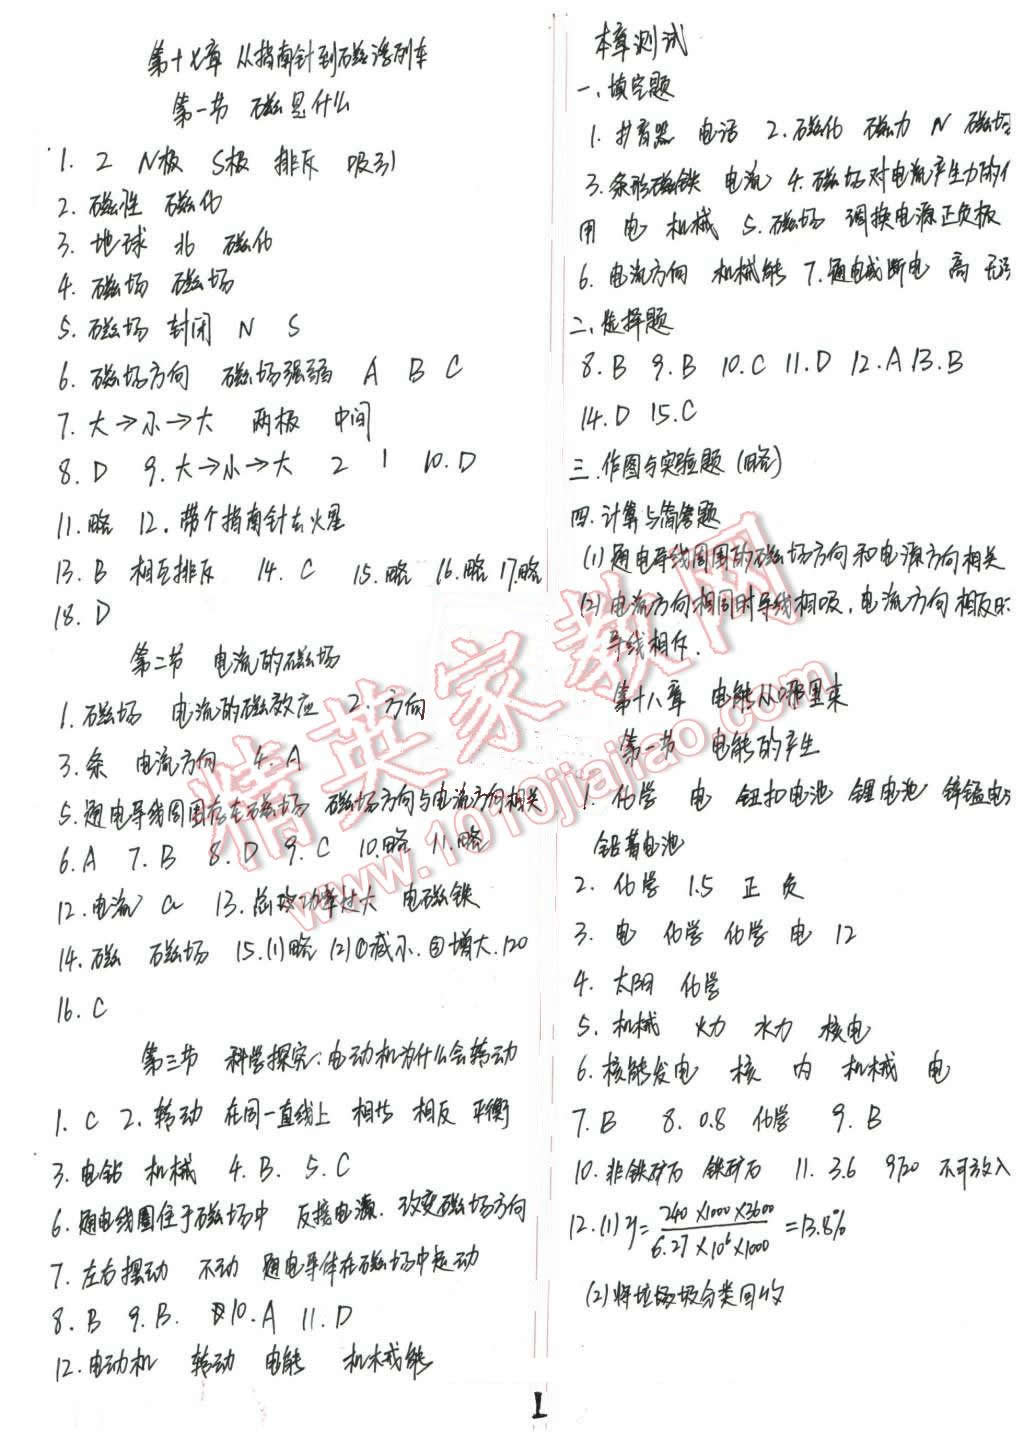 第十七章 从指南针到磁浮列车
第一节 磁是什么
1. 2 N极 S极 排斥 吸引
2. 磁性 磁化
3. 地球 北 磁化
4. 磁场 磁场
5. 磁场 封闭 N S
6. 磁场方向 磁场强弱 A B C
7. 大→小→大 两极 中间
8. D 9. 大→小→大 2 1 10. D
11. 略 12. 带个指南针去火星
13. B 相互排斥 14. C 15. 略 16. 略 17. 略
18. D
第二节 电流的磁场
1. 磁场 电流的磁效应 2. 方向
3. 条 电流方向 4. A
5. 通电导线周围存在磁场 磁场方向与电流方向相关
6. A 7. B 8. D 9. C 10. 略 11. 略
12. 电流 a 13. 总功率过大 电磁铁
14. 磁 磁场 15. (1)略 (2)①减小. ②增大. 120
16. C
第三节 科学探究:电动机为什么会转动
1. C 2. 转动 在同一直线上 相等 相反 平衡
3. 电钻 机械 4. B. 5. C
6. 通电线圈位于磁场中 反接电源. 改变磁场方向
7. 左右摆动 不动 通电导体在磁场中运动
8. B 9. B. 10. A 11. D
12. 电动机 转动 电能 机械能
本章测试
一、填空题
1. 扩音器 电话 2. 磁化 磁力 N 磁场
3. 条形磁铁 电流 4. 磁场对电流产生力的作
用 电 机械 5. 磁场 调换电源正负极
6. 电流方向 机械能 7. 通电或断电 高 无污
二、选择题
8. B 9. B 10. C 11. D 12. A 13. B
14. D 15. C
三. 作图与实验题 (略)
四. 计算与简答题
(1) 通电导线周围的磁场方向和电源方向相关
(2) 电流方向相同时导线相吸, 电流方向相反时
导线相斥.
第十八章 电能从哪里来
第一节 电能的产生
1. 化学 电 钮扣电池 锂电池 锌锰电池
铅蓄电池
2. 化学 1.5 正 负
3. 电 化学 化学 电 12
4. 太阳 化学
5. 机械 火力 水力 核电
6. 核能发电 核 内 机械 电
7. B 8. 0.8 化学 9. B
10. 非铁矿石 铁矿石 11. 3.6 9720 不可放入
12. (1) η= 240×1000×3600 / 6.27×10⁶×1000 =13.8%
(2) 将垃圾分类回收
精英家教网
www.1010jiajiao.com
1